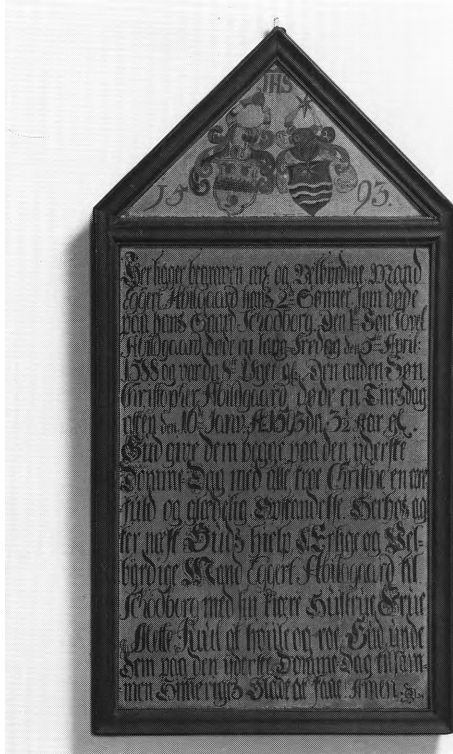 IHS
15 93.
Her ligger begraven erl. og Velbyrdige Mand
Eggert Abildgaard hans 2de Sønner, som døde
paa hans Gaard Schodborg, Den 1te Søn Jovel
Abildgaard døde en lang Fredag den 5te April
1588 og var da Uger gl. Den anden Søn
Christopher Abildgaard døde en Tirsdag
aften den 10de Janv. 1593 da 3½ Aar gl.
Gud give dem begge paa den yderste
Domme-Dag med alle troe Christne en ære
fuld og glædelig Opstandelse
ter næst Guds hielp Erlige og Vel-
byrdige Mand Eggert Abildgaard til
Schodborg med sin kiere Hustrue Frue
Mette Juul at hvile og roe Gud unde
dem paa den yderste Domme Dag til sam-
men Himmeriges Glæde at faae Amen.